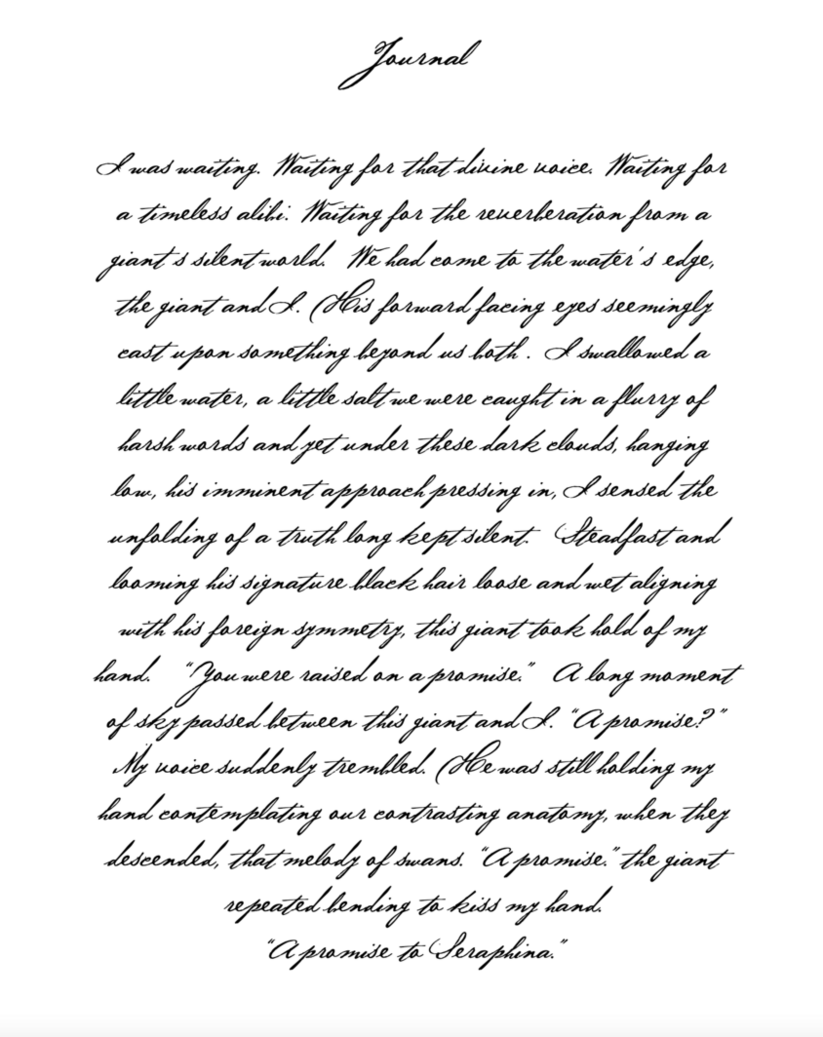 Journal
I was waiting. Waiting for that divine voice. Waiting for
a timeless alibi. Waiting for the reverberation from a
giant's silent world. We had come to the water's edge,
the giant and I. His forward facing eyes seemingly
cast upon something beyond us both. I swallowed a
little water, a little salt we were caught in a flurry of
harsh words and yet under these dark clouds, hanging
low, his imminent approach pressing in, I sensed the
unfolding of a truth long kept silent. Steadfast and
looming his signature black hair loose and wet aligning
with his foreign symmetry, this giant took hold of my
hand. "You were raised on a promise." A long moment
of sky passed between this giant and I. "A promise?"
My voice suddenly trembled. He was still holding my
hand contemplating our contrasting anatomy, when they
descended, that melody of swans. "A promise." the giant
repeated bending to kiss my hand.
"A promise to Seraphina."